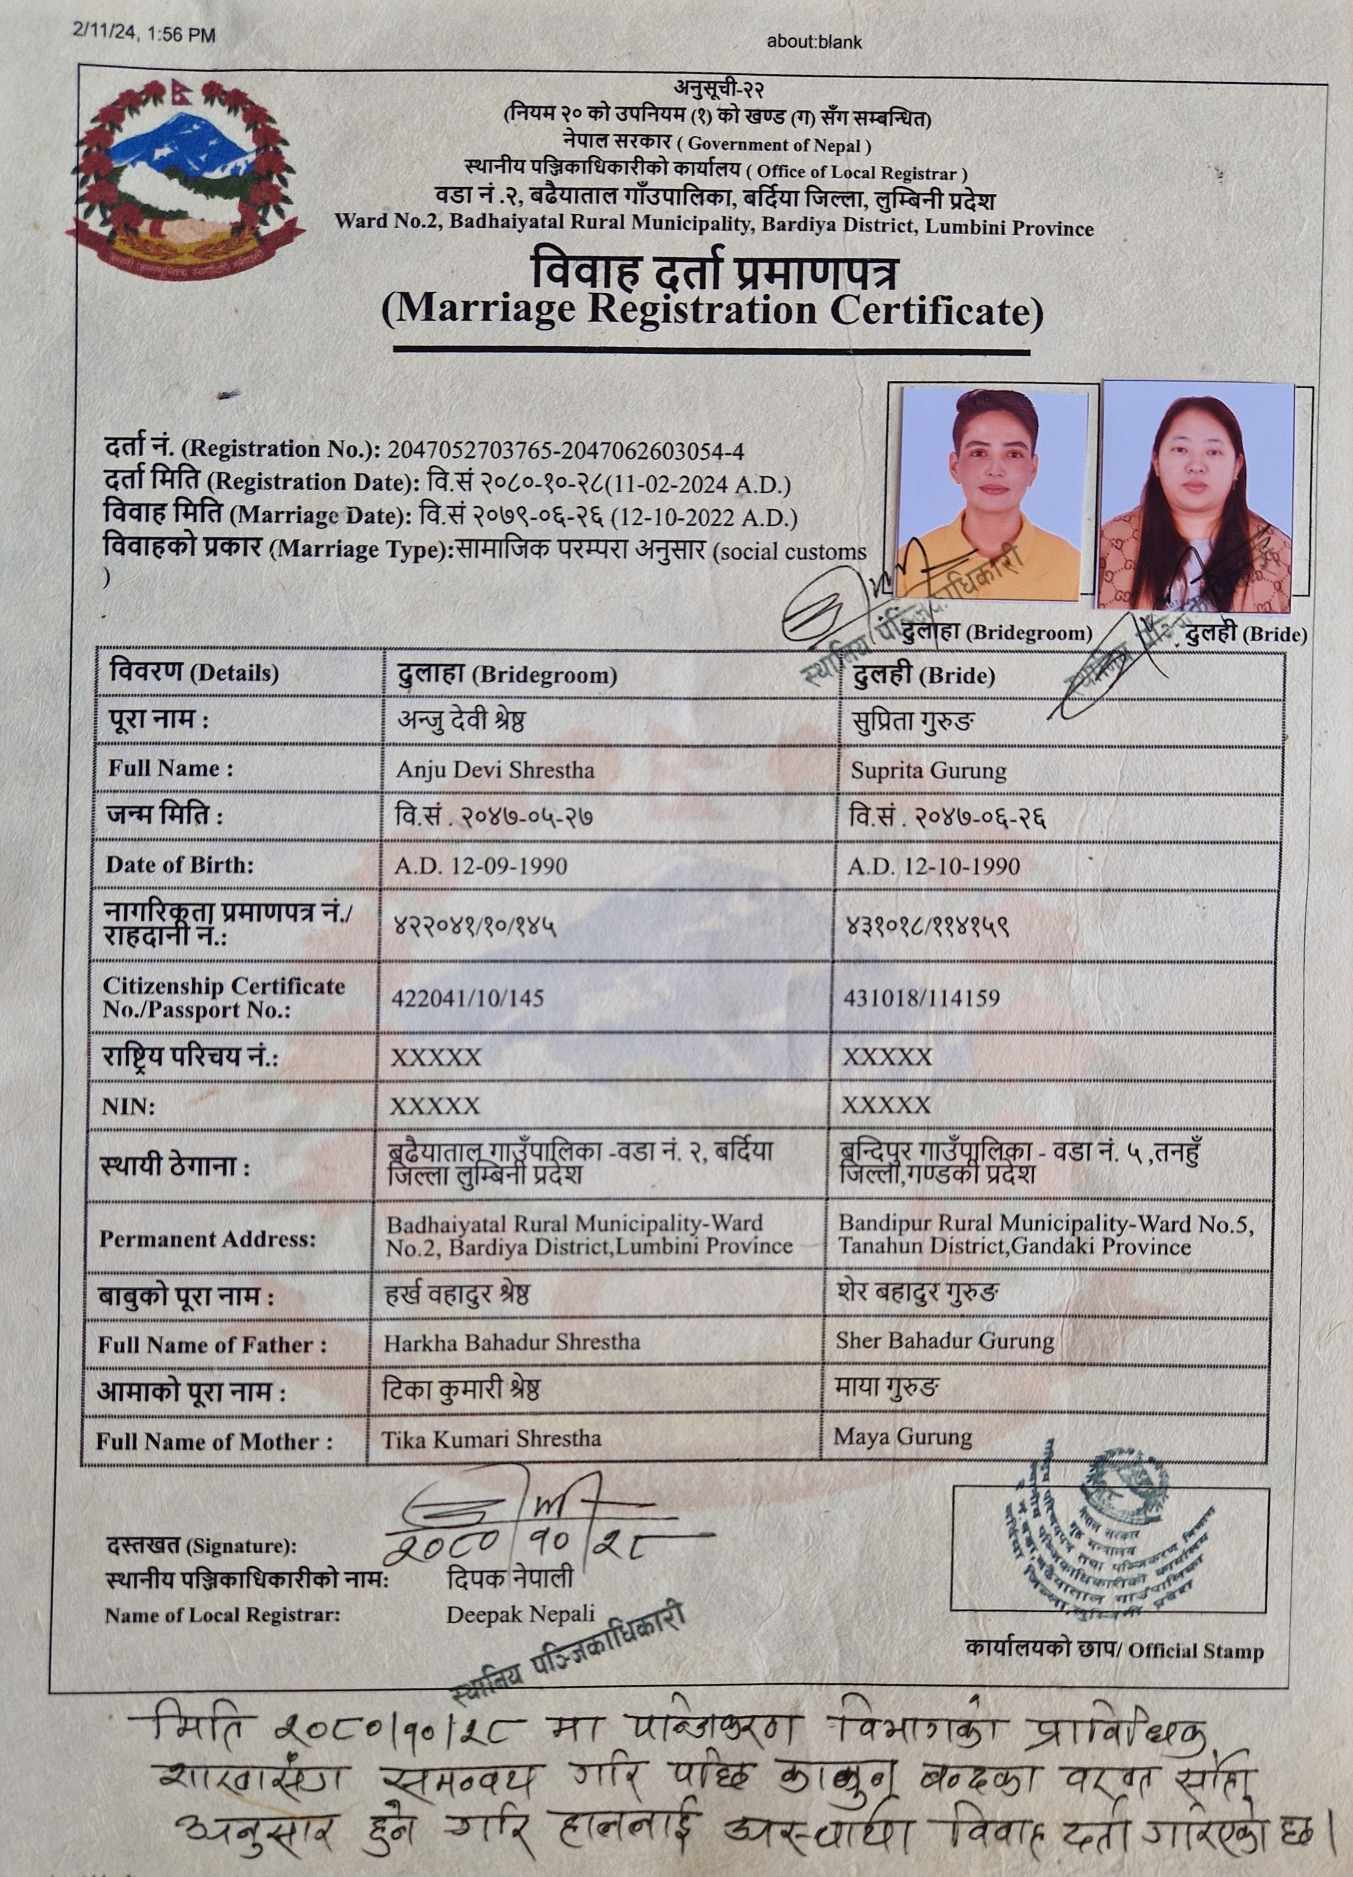 2/11/24, 1:56 PM
about:blank
अनुसूची-२२
(नियम २० को उपनियम (१) को खण्ड (ग) सँग सम्बन्धित)
नेपाल सरकार ( Government of Nepal )
स्थानीय पञ्जिकाधिकारीको कार्यालय ( Office of Local Registrar )
वडा नं .२, बढैयाताल गाँउपालिका, बर्दिया जिल्ला, लुम्बिनी प्रदेश
Ward No.2, Badhaiyatal Rural Municipality, Bardiya District, Lumbini Province
विवाह दर्ता प्रमाणपत्र
(Marriage Registration Certificate)
दर्ता नं. (Registration No.): 2047052703765-2047062603054-4
दर्ता मिति (Registration Date): वि.सं २०८०-१०-२८(11-02-2024 A.D.)
विवाह मिति (Marriage Date): वि.सं २०७९-०६-२६ (12-10-2022 A.D.)
विवाहको प्रकार (Marriage Type):सामाजिक परम्परा अनुसार (social customs
)
स्थानिय पंञ्जिकाधिकारी
दुलाहा (Bridegroom) दुलही (Bride)
विवरण (Details) दुलाहा (Bridegroom) दुलही (Bride)
पूरा नाम : अन्जु देवी श्रेष्ठ सुप्रिता गुरुङ
Full Name : Anju Devi Shrestha Suprita Gurung
जन्म मिति : वि.सं . २०४७-०५-२७ वि.सं . २०४७-०६-२६
Date of Birth: A.D. 12-09-1990 A.D. 12-10-1990
नागरिकता प्रमाणपत्र नं./ ४२२०४१/१०/१४५ ४३१०१८/११४१५९
राहदानी नं.:
Citizenship Certificate 422041/10/145 431018/114159
No./Passport No.:
राष्ट्रिय परिचय नं.: XXXXX XXXXX
NIN: XXXXX XXXXX
स्थायी ठेगाना : बढैयाताल गाउँपालिका -वडा नं. २, बर्दिया बन्दिपुर गाउँपालिका - वडा नं. ५ ,तनहुँ
जिल्ला लुम्बिनी प्रदेश जिल्ला,गण्डकी प्रदेश
Permanent Address: Badhaiyatal Rural Municipality-Ward Bandipur Rural Municipality-Ward No.5,
No.2, Bardiya District,Lumbini Province Tanahun District,Gandaki Province
बाबुको पूरा नाम : हर्ख वहादुर श्रेष्ठ शेर बहादुर गुरुङ
Full Name of Father : Harkha Bahadur Shrestha Sher Bahadur Gurung
आमाको पूरा नाम : टिका कुमारी श्रेष्ठ माया गुरुङ
Full Name of Mother : Tika Kumari Shrestha Maya Gurung
दस्तखत (Signature): २०८०/१०/२८
स्थानीय पञ्जिकाधिकारीको नामः दिपक नेपाली
Name of Local Registrar: Deepak Nepali
स्थानिय पञ्जिकाधिकारी
नेपाल सरकार
गृह मन्त्रालय
कार्यालयको छाप/ Official Stamp
मिति २०८०/१०/२८ मा पञ्जिकरण विभागको प्राविधिक
शाखासंग समन्वय गरि पछि कानुन बन्दका वखत सोही
अनुसार हुने गरि हाललाई अस्थायी विवाह दर्ता गरिएको छ।